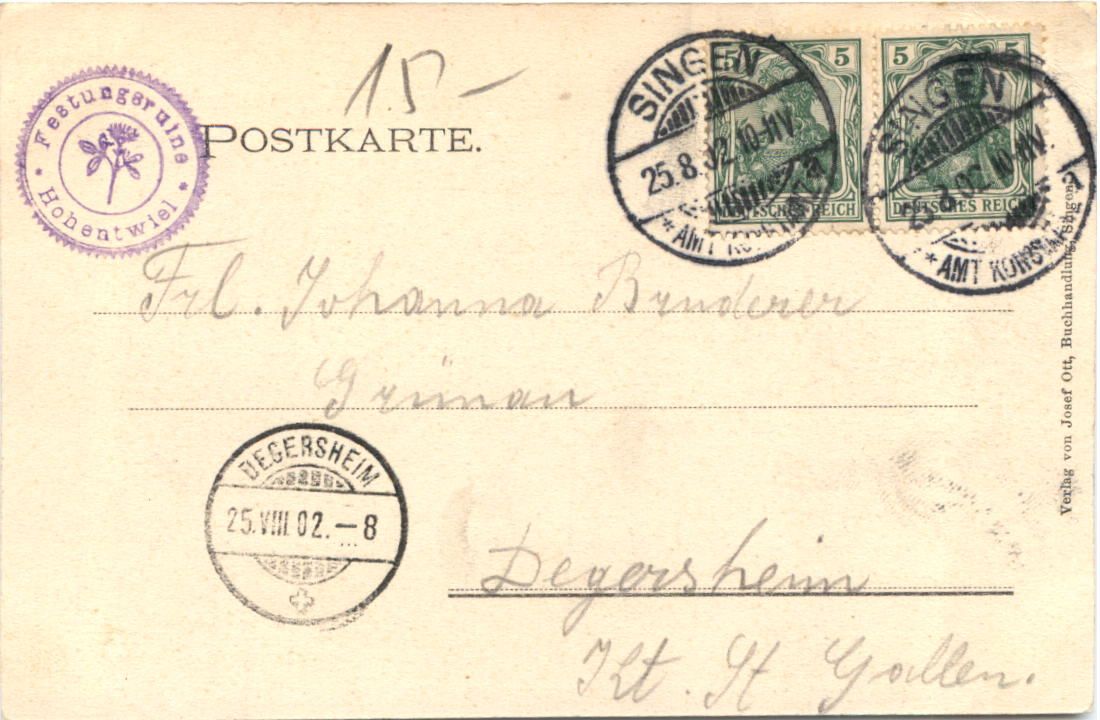 15-
* Festungsruine * Hohentwiel
POSTKARTE.
5 5
DEUTSCHES REICH
SINGEN
25.8.02.10-11V.
* AMT KONSTANZ
a
5 5
DEUTSCHES REICH
SINGEN
25.8.02.10-11V.
* AMT KONSTANZ
a
Frl. Johanna Bruderer
Grünau
DEGERSHEIM
25.VIII.02.-8
Degersheim
Kt. St Gallen.
Verlag von Josef Ott, Buchhandlung, Singen